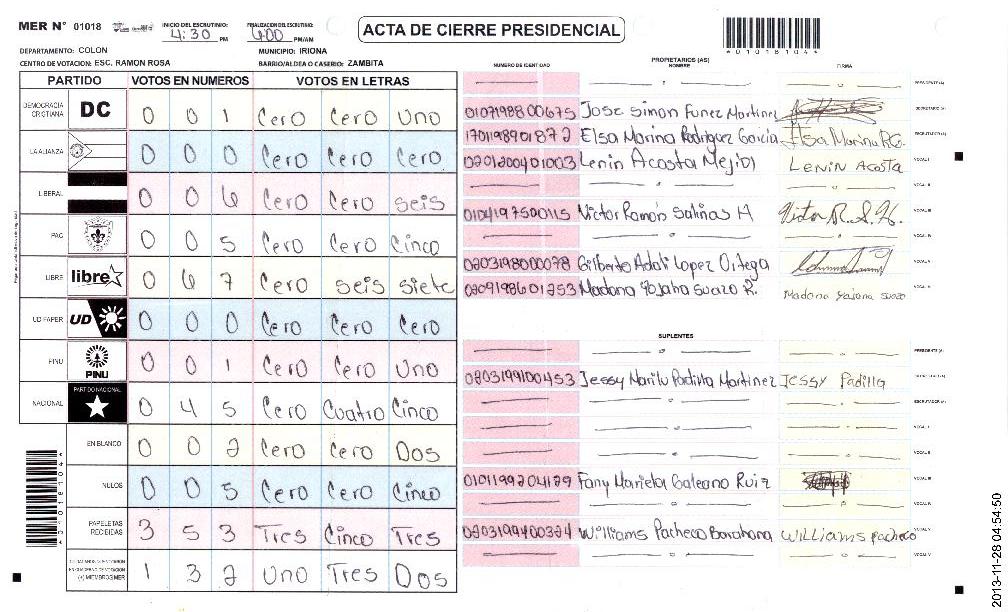 MER N° 01018
INICIO DEL ESCRUTINIO: 4:30 PM
FINALIZACION DEL ESCRUTINIO: 6:00 PM/AM
ACTA DE CIERRE PRESIDENCIAL
4010181044
DEPARTAMENTO: COLON
MUNICIPIO: IRIONA
CENTRO DE VOTACION: ESC. RAMON ROSA
BARRIO/ALDEA O CASERIO: ZAMBITA
PARTIDO VOTOS EN NUMEROS VOTOS EN LETRAS
DEMOCRACIA CRISTIANA DC 0 0 1 Cero Cero Uno
LA ALIANZA 0 0 0 Cero Cero Cero
LIBERAL 0 0 6 Cero Cero seis
PAC 0 0 5 Cero Cero Cinco
LIBRE libre 0 6 7 Cero seis siete
UD FAPER UD 0 0 0 Cero Cero Cero
PINU PINU 0 0 1 Cero Cero Uno
NACIONAL PARTIDO NACIONAL 0 4 5 Cero Cuatro Cinco
EN BLANCO 0 0 2 Cero Cero Dos
NULOS 0 0 5 Cero Cero Cinco
PAPELETAS RECIBIDAS 3 5 3 Tres Cinco Tres
(+) MIEMBROS MER 1 3 2 Uno Tres Dos
PROPIETARIOS (AS)
NUMERO DE IDENTIDAD NOMBRE FIRMA
PRESIDENTE (A)
0107198800675 Jose Simon Funez Martinez SECRETARIO (A)
1701198901872 Elsa Marina Rodriguez Garcia Elsa Marina R.G. ESCRUTADOR (A)
0201200401003 Lenin Acosta Mejia LENIN ACOSTA VOCAL I
VOCAL II
0104197500115 Victor Ramón Salinas H Victor R. S. H. VOCAL III
VOCAL IV
0203198000078 Gilberto Adali Lopez Ortega VOCAL V
0209198601253 Madona Yojana Suazo R. Madona Yojana Suazo
SUPLENTES
PRESIDENTE (A)
0203199100453 Jessy Marilu Padilla Martinez JESSY Padilla SECRETARIO (A)
ESCRUTADOR (A)
VOCAL I
VOCAL II
0101199204129 Fany Mariela Galeano Ruiz VOCAL III
VOCAL IV
0203199400324 Williams Pacheco Barahona WILLIAMS Pacheco VOCAL V
2013-11-28 04:54:50